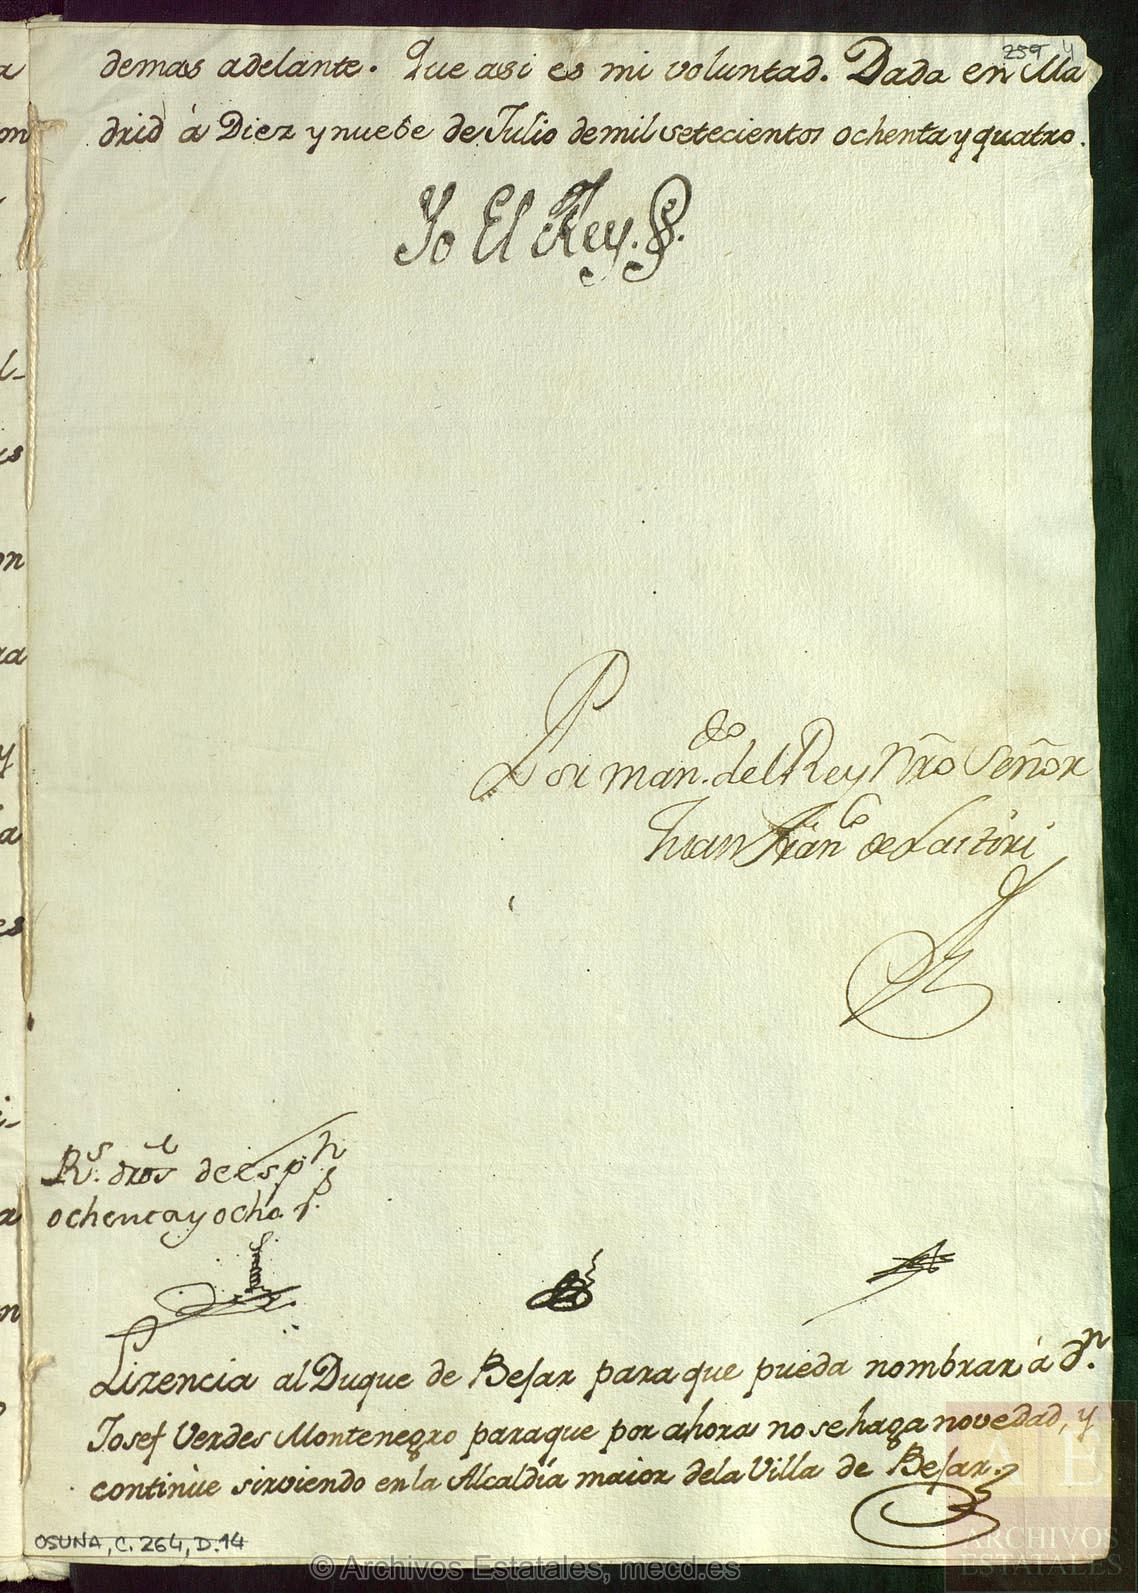 259
demas adelante. Que asi es mi voluntad. Dada en Ma
drid à Diez y nuebe de Julio de mil setecientos ochenta y quatro.
Yo El Rey.
Por man.do del Rey Nro Señor
Juan Fran.co de Lastiri
R.s dros de esp.n
ochenta y ocho r.s
Lizencia al Duque de Bejar para que pueda nombrar à d.n
Josef Verdes Montenegro para que por ahora no se haga novedad, y
continùe sirviendo en la Alcaldía maior de la Villa de Bejar.
OSUNA, C. 264, D. 14
AE
ARCHIVOS
ESTATALES
© Archivos Estatales, mecd.es